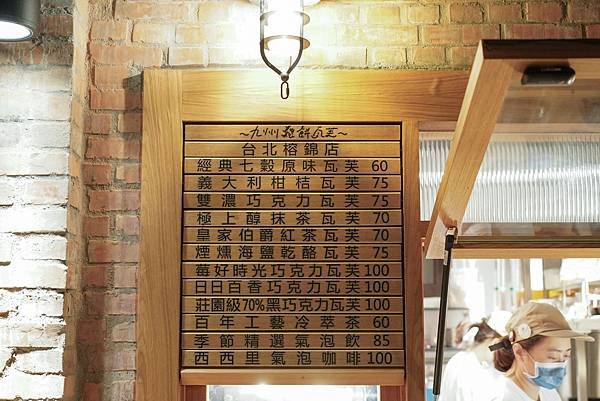 ~九州鬆餅瓦芙~
台北榕錦店
經典七穀原味瓦芙 60
義大利柑桔瓦芙 75
雙濃巧克力瓦芙 75
極上醇抹茶瓦芙 70
皇家伯爵紅茶瓦芙 70
煙燻海鹽乾酪瓦芙 75
莓好時光巧克力瓦芙 100
日日百香巧克力瓦芙 100
莊園級70%黑巧克力瓦芙 100
百年工藝冷萃茶 60
季節精選氣泡飲 85
西西里氣泡咖啡 100